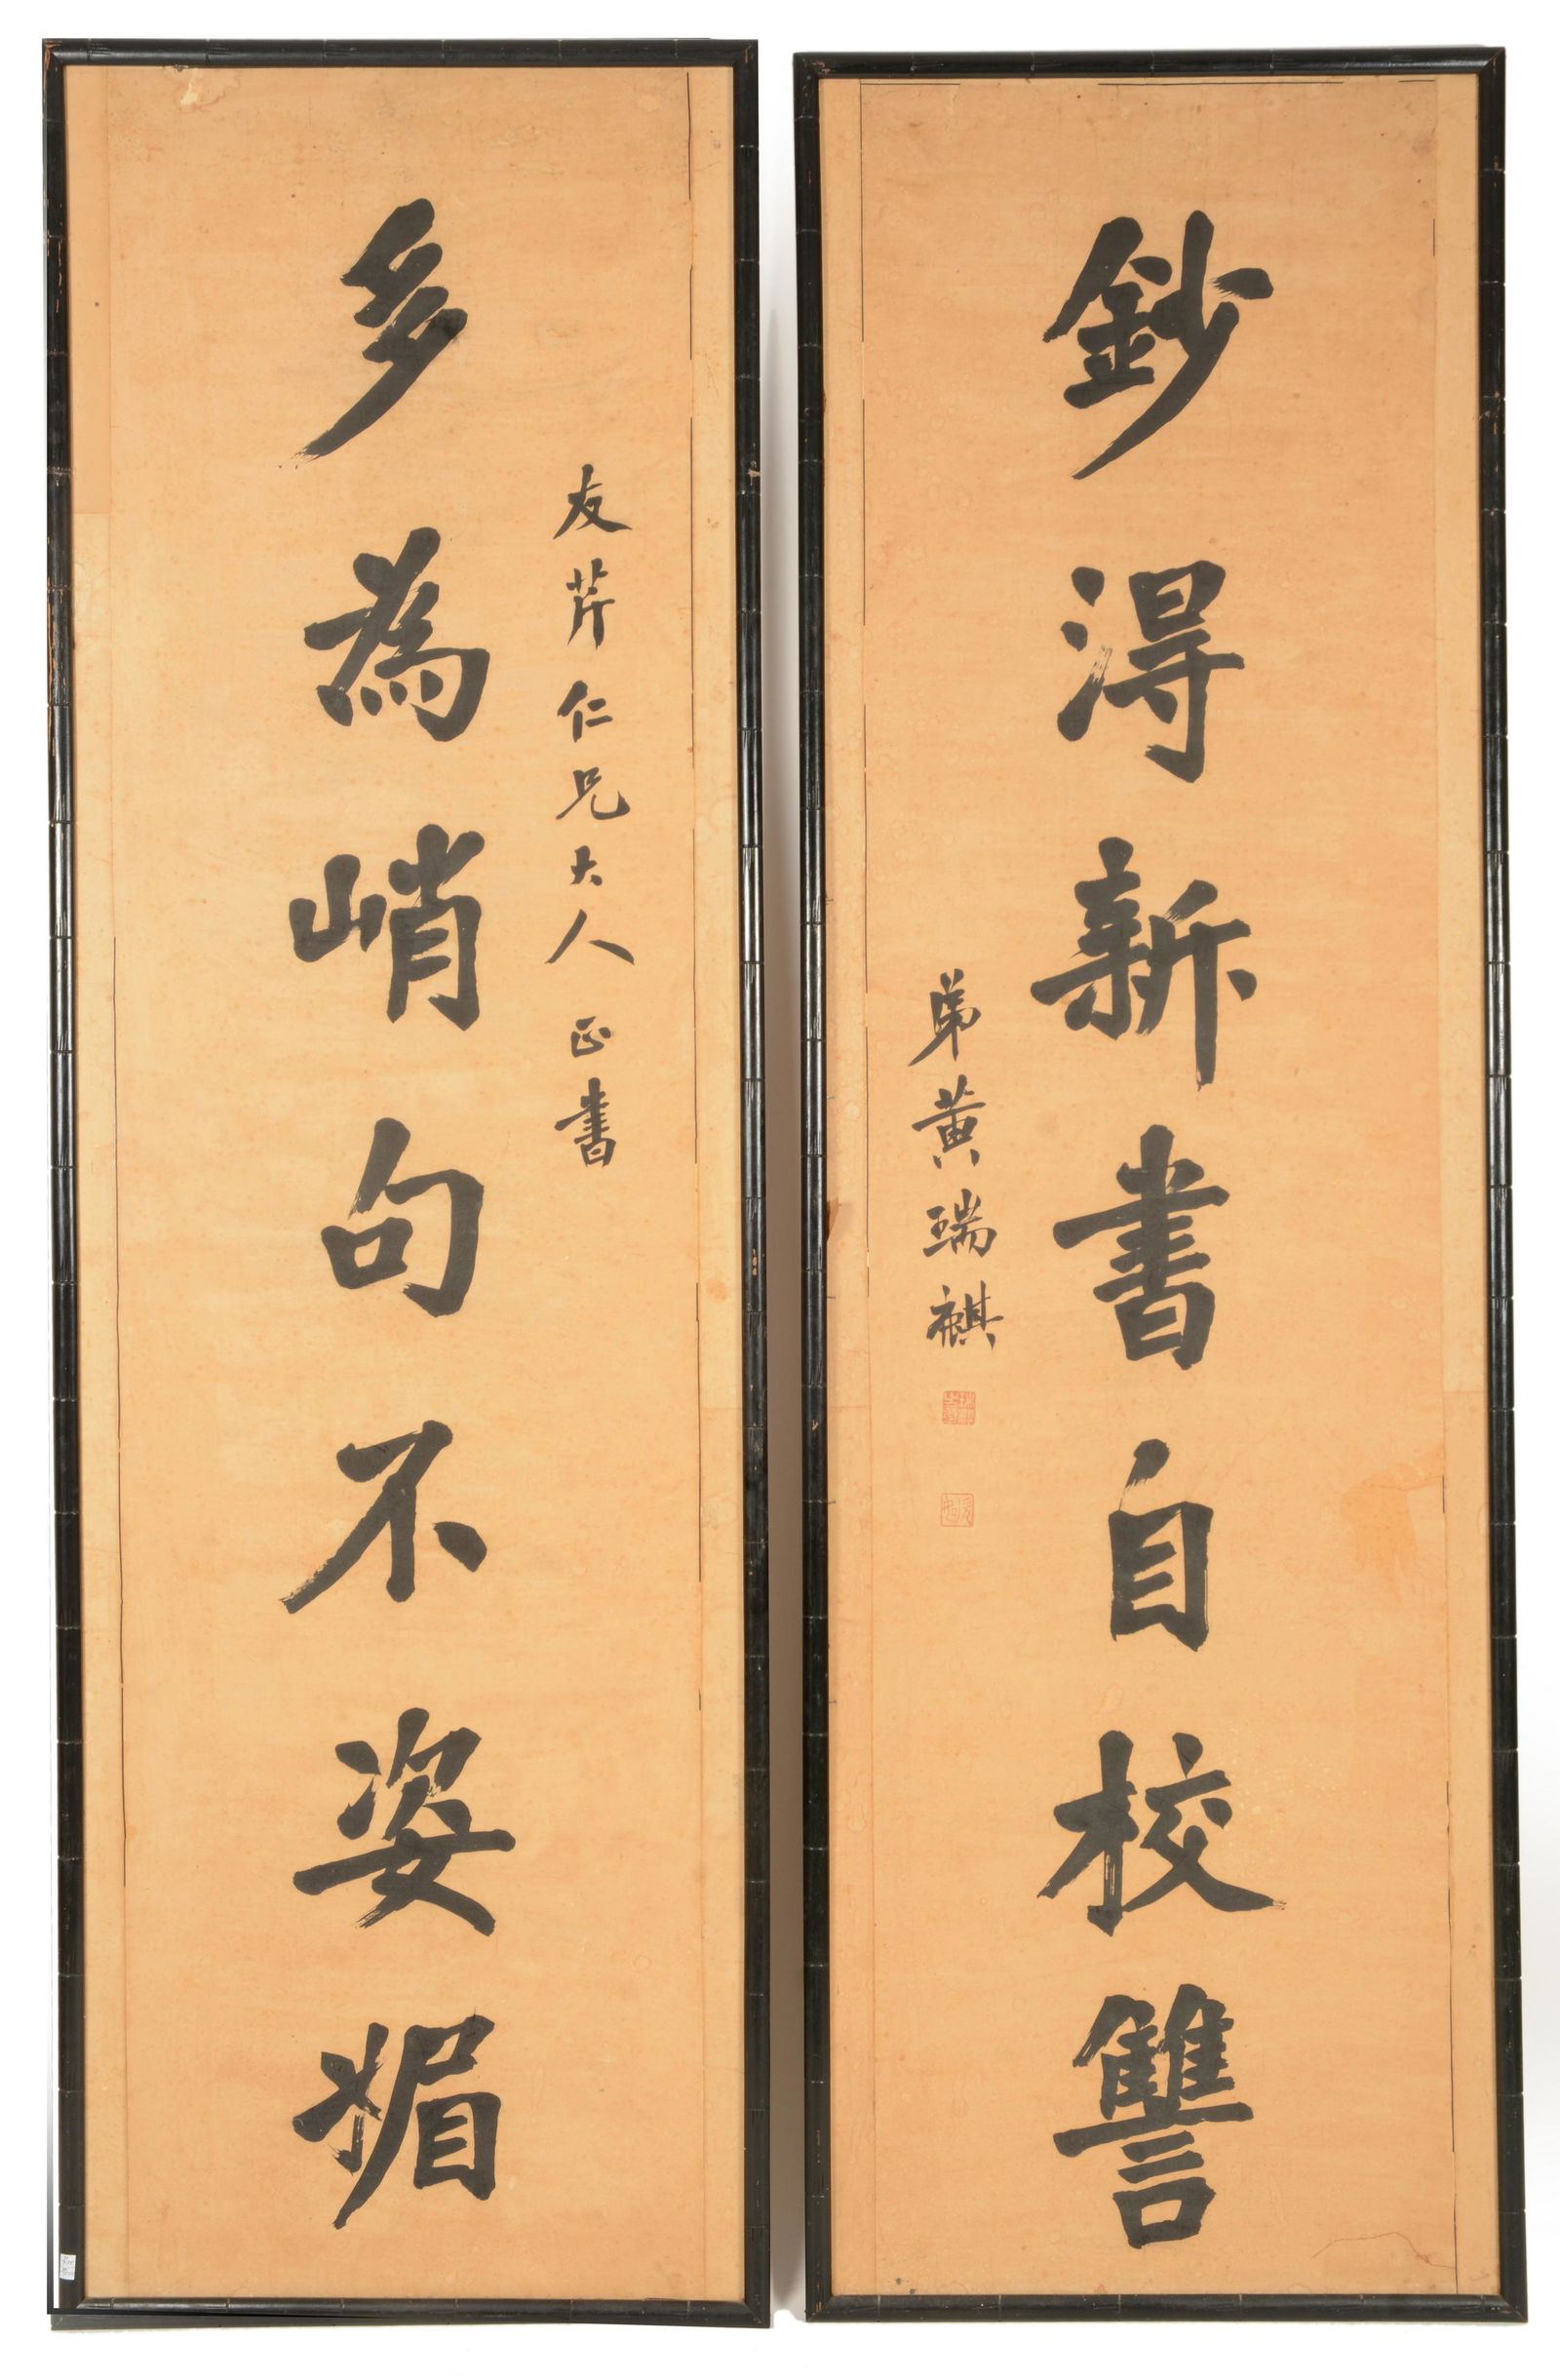 鈔得新書自校讐
弟黄瑞祺
友芹仁兄大人正書
多為峭句不姿媚